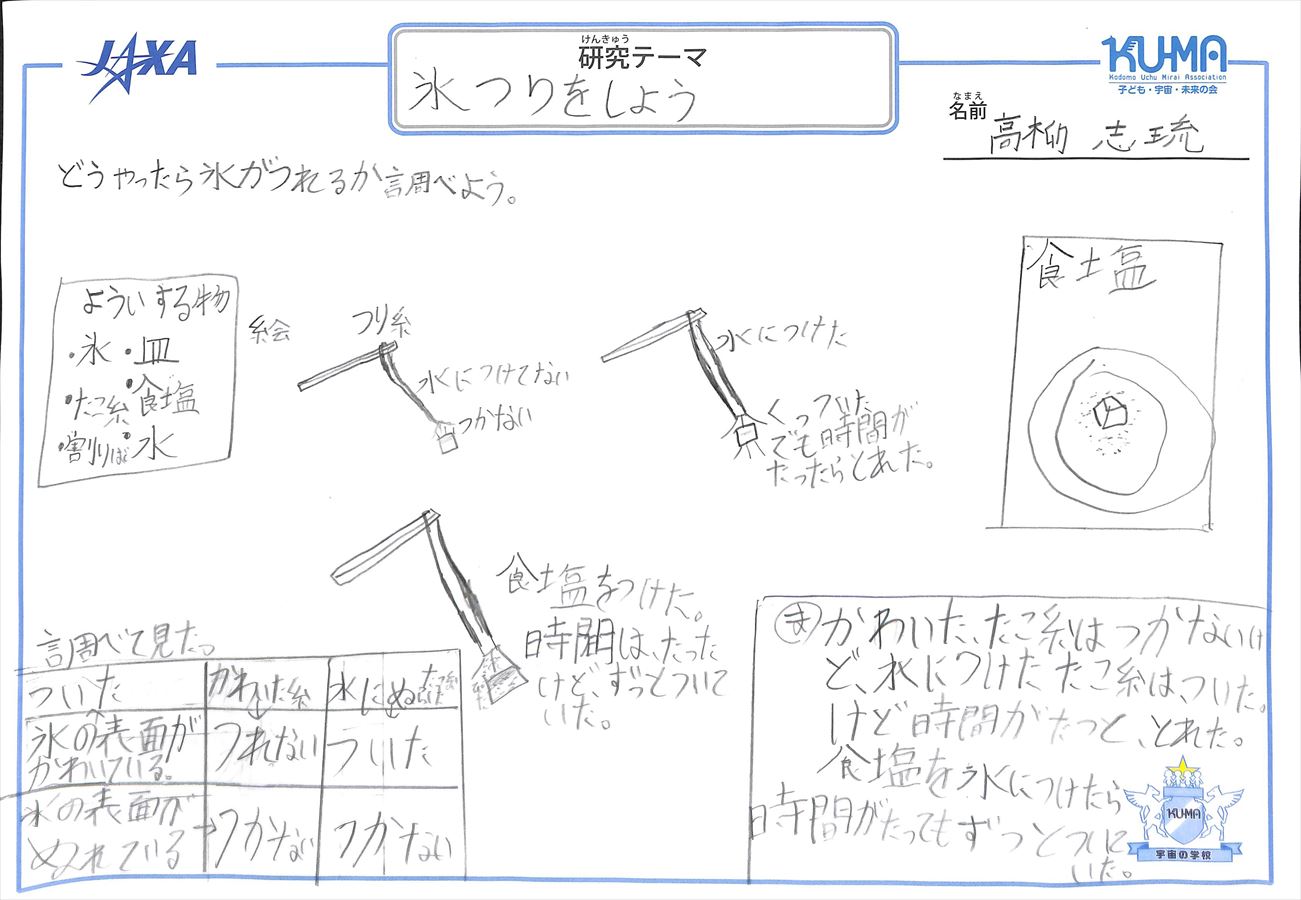 JAXA
けんきゅう
研究テーマ
氷つりをしよう
KU-MA
Kodomo Uchu Mirai Association
子ども・宇宙・未来の会
なまえ
名前
高柳 志琉
どうやったら氷がつれるか調べよう。
よういする物
・氷 ・皿
・たこ糸 ・食塩
・割りばし ・水
絵
つり糸
水につけてない
つかない
水につけた
くっついた
でも時間が
たったらとれた。
食塩
食塩をつけた。
時間は、たった
けど、ずっとついて
いた。
調べて見た。
ついた
かわいた糸
水にぬらした
氷の表面が
かわいている。
つれない
ついた
氷の表面が
ぬれている
つかない
つかない
ま かわいた、たこ糸はつかないけ
ど、水につけたたこ糸は、ついた。
けど時間がたつと、とれた。
食塩を氷につけたら
時間がたってもずっとついて
いた。
KUMA
宇宙の学校